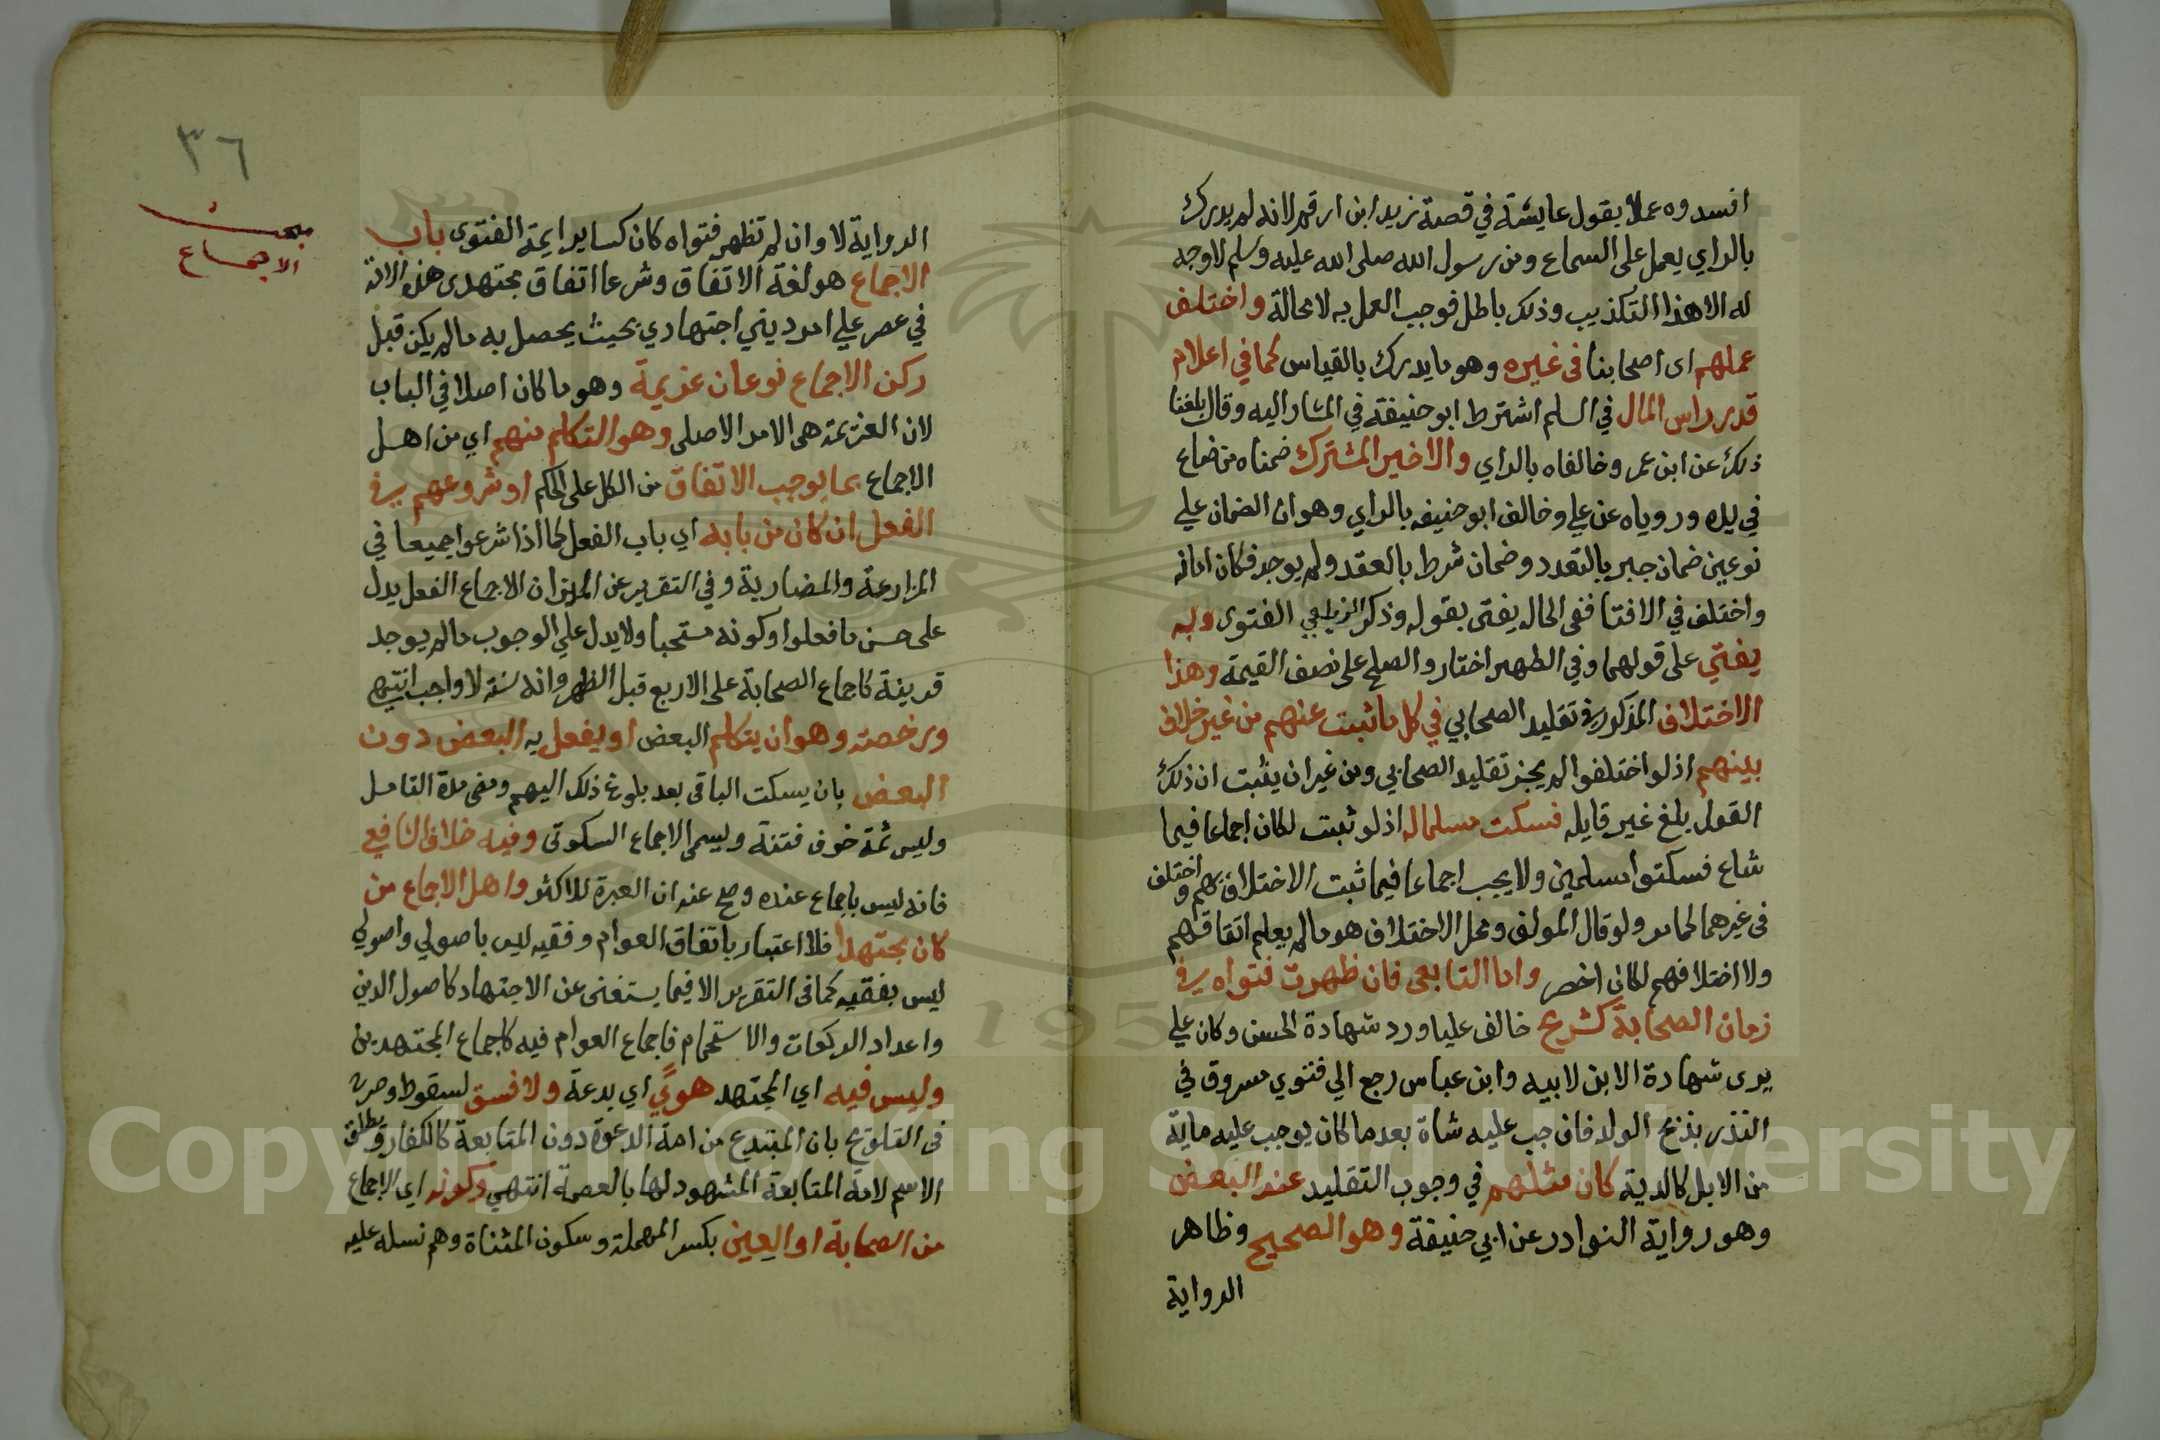 افسدوه عملا بقول عايشة في قصة زيد ابن ارقم لانه لم يدرك
بالراي يعمل على السماع ومن رسول الله صلى الله عليه وسلم لا وجه
له الا هذا التكذيب وذلك باطل فوجب العمل به لا محالة واختلف
عملهم اى اصحابنا فى غيره وهو ما يدرك بالقياس كما في اعلام
قدر راس المال في السلم اشترط ابو حنيفة في المشار اليه وقال بلغنا
ذلك عن ابن عمر وخالفاه بالراي والاجير المشترك ضمناه ما ضاع
في يده وروياه عن علي وخالف ابو حنيفه بالراي وهو ان الضمان علي
نوعين ضمان جبر بالتعدد وضمان شرط بالعقد ولم يوجد فكان امانه
واختلف في الافتا ففى الحال يفتى بقوله وذكر الزيلعي الفتوى وبه
يفتي على قولهما وفي الظهير اختار والصلح على نصف القيمة وهذا
الاختلاف المذكور في تقليد الصحابي في كل ما ثبت عنهم من غير خلاف
بينهم اذ لو اختلفوا لم يجز تقليد الصحابي ومن غير ان يثبت ان ذلك
القول بلغ غير قايله فسكت مسلما له اذ لو ثبت لكان اجماعا فيما
شاع فسكتوا مسلمين ولا يجب اجماعا فيما ثبت الاختلاف بينهم واختلف
فى غيرهما لما مر ولو قال المولف ومحل الاختلاف هو ما لم يعلم اتفاقهم
ولا اختلافهم لكان اخصر واما التابعى فان ظهرت فتواه في
زمان الصحابة كشريح خالف عليا ورد شهادة الحسن وكان علي
يرى شهادة الابن لابيه وابن عباس رجع الي فتوي مسروق في
النذر بذبح الولد فاوجب عليه شاة بعد ما كان يوجب عليه ماية
من الابل كالدية كان مثلهم في وجوب التقليد عند البعض
وهو رواية النوادر عن ابي حنيفة وهو الصحيح وظاهر
الرواية
٣٦
مبحث
الاجماع
الرواية لا وان لم تظهر فتواه كان كساير ايمة الفتوى باب
الاجماع هو لغة الاتفاق وشرعا اتفاق مجتهدى هذه الامة
في عصر علي امر ديني اجتهادي بحيث يحصل به ما لم يكن قبل
ركن الاجماع نوعان عزيمة وهو ما كان اصلا في الباب
لان العزيمة هى الامر الاصلى وهو التكلم منهم اي من اهل
الاجماع بما يوجب الاتفاق من الكل على الحكم او شروعهم في
الفعل ان كان من بابه اي باب الفعل كما اذا شرعوا جميعا في
المزارعة والمضاربة وفي التقرير عن الميزان الاجماع الفعل يدل
على حسن ما فعلوا وكونه مستحبا ولا يدل علي الوجوب ما لم يوجد
قرينة كاجماع الصحابة على الاربع قبل الظهر وانه سنة لا واجب انتهى
ورخصة وهو ان يتكلم البعض او يفعل يه البعض دون
البعض بان يسكت الباقى بعد بلوغ ذلك اليهم ومضى مدة التامل
وليس ثمة خوف فتنة وليسمى الاجماع السكوتى وفيه خلاف الشافعي
فانه ليس باجماع عنده وصح عنه ان العبرة للاكثر واهل الاجماع من
كان مجتهدا فلا اعتبار باتفاق العوام وفقيه ليس باصولي واصولي
ليس بفقيه كما فى التقرير الا فيما يستغنى عن الاجتهاد كاصول الدين
واعداد الركعات والاستحمام فاجماع العوام فيه كاجماع المجتهدين
وليس فيه اي المجتهد هوًي اي بدعة ولا فسق لسقوط
فى التلويح بان المبتدع من امة الدعوة دون المتابعة كالكفار ومطلق
الاسم لامة المتابعة المشهود لها بالعصمة انتهي وكونه اي الاجماع
من الصحابة او العترة بكسر المهملة وسكون المثناة وهم نسله عليه
Copyright © King Saud University
1957